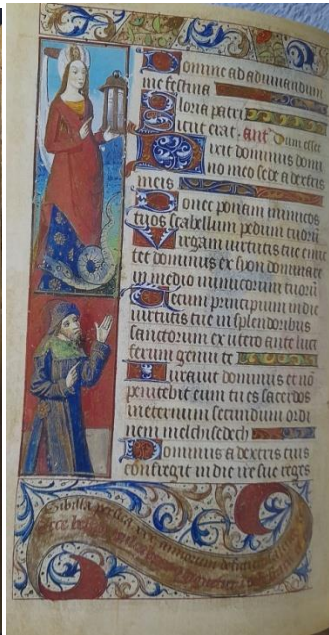 Domine ad adiuvandum
me festina
Gloria patri
Sicut erat. ant Dum esset
Dixit dominus domi
no meo sede a dextris
meis
Donec ponam inimicos
tuos scabellum pedum tuorum
Virgam virtutis tue emit
tet dominus ex syon dominare
in medio inimicorum tuorum
Tecum principium in die
virtutis tue in splendoribus
sanctorum ex utero ante luci
ferum genui te
Iuravit dominus et nō
penitebit eum tu es sacerdos
in eternum secundum ordi
nem melchisedech
Dominus a dextris tuis
confregit in die ire sue reges
Sibilla persica xxx annorum
Ecce bestia